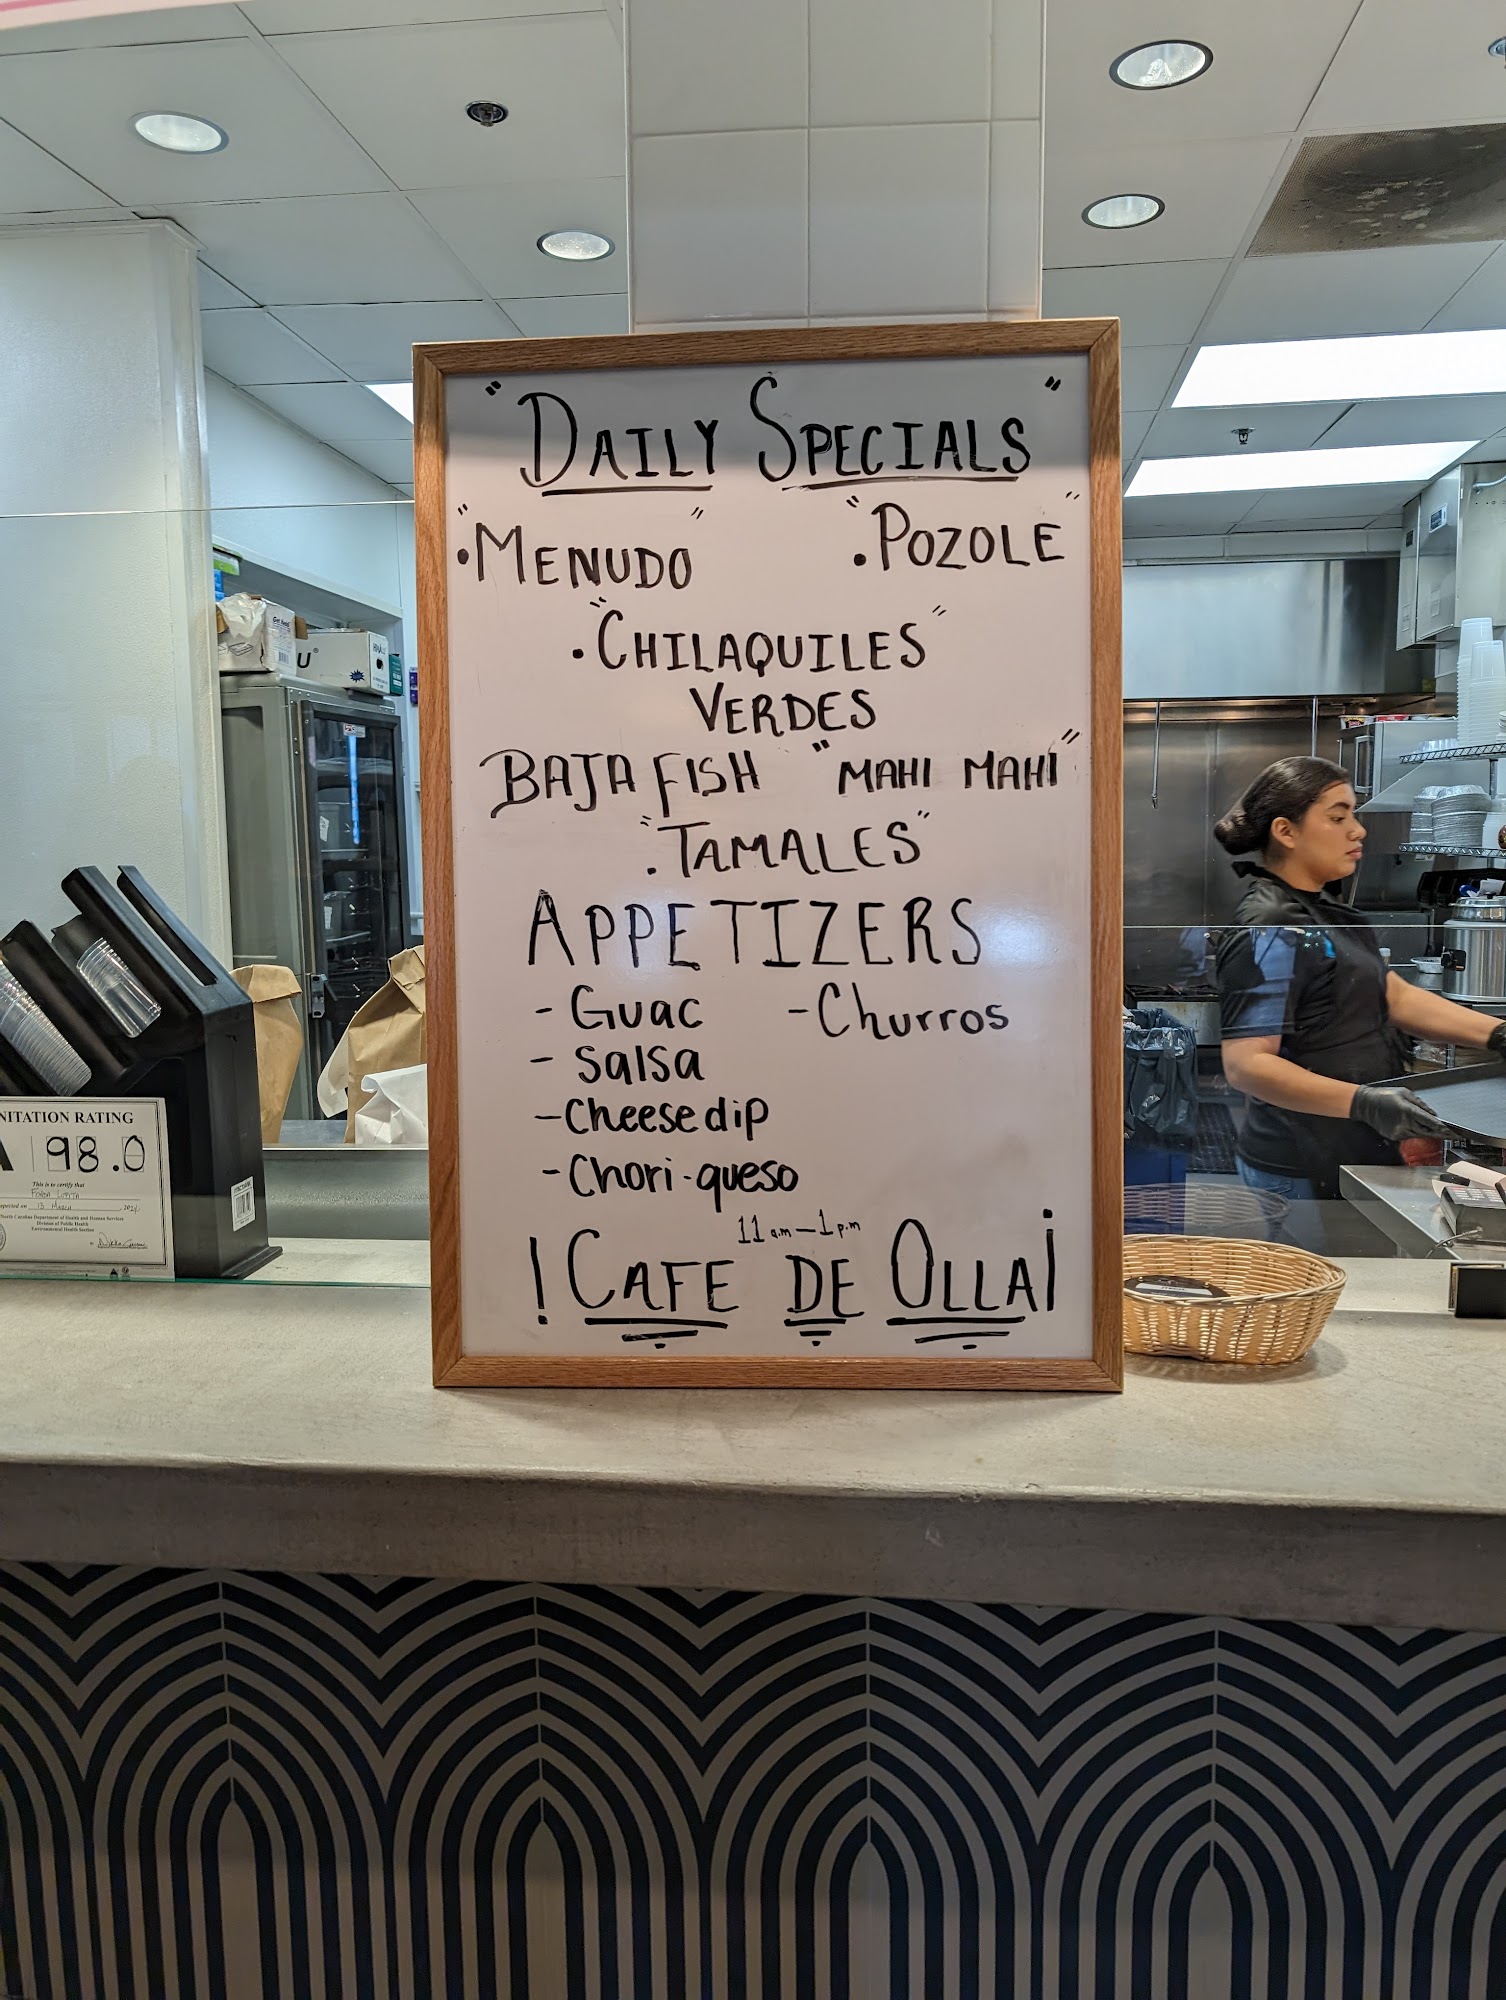 "DAILY SPECIALS"
•"MENUDO" •"POZOLE"
•"CHILAQUILES"
VERDES
BAJA FISH "MAHI MAHI"
•"TAMALES"
APPETIZERS
- Guac - Churros
- Salsa
- Cheese dip
- Chori-queso
11 a.m — 1 p.m
!CAFE DE OLLA¡
NITATION RATING
A 98.0
This is to certify that
13 March 2024
North Carolina Department of Health and Human Services
Division of Public Health
Environmental Health Section